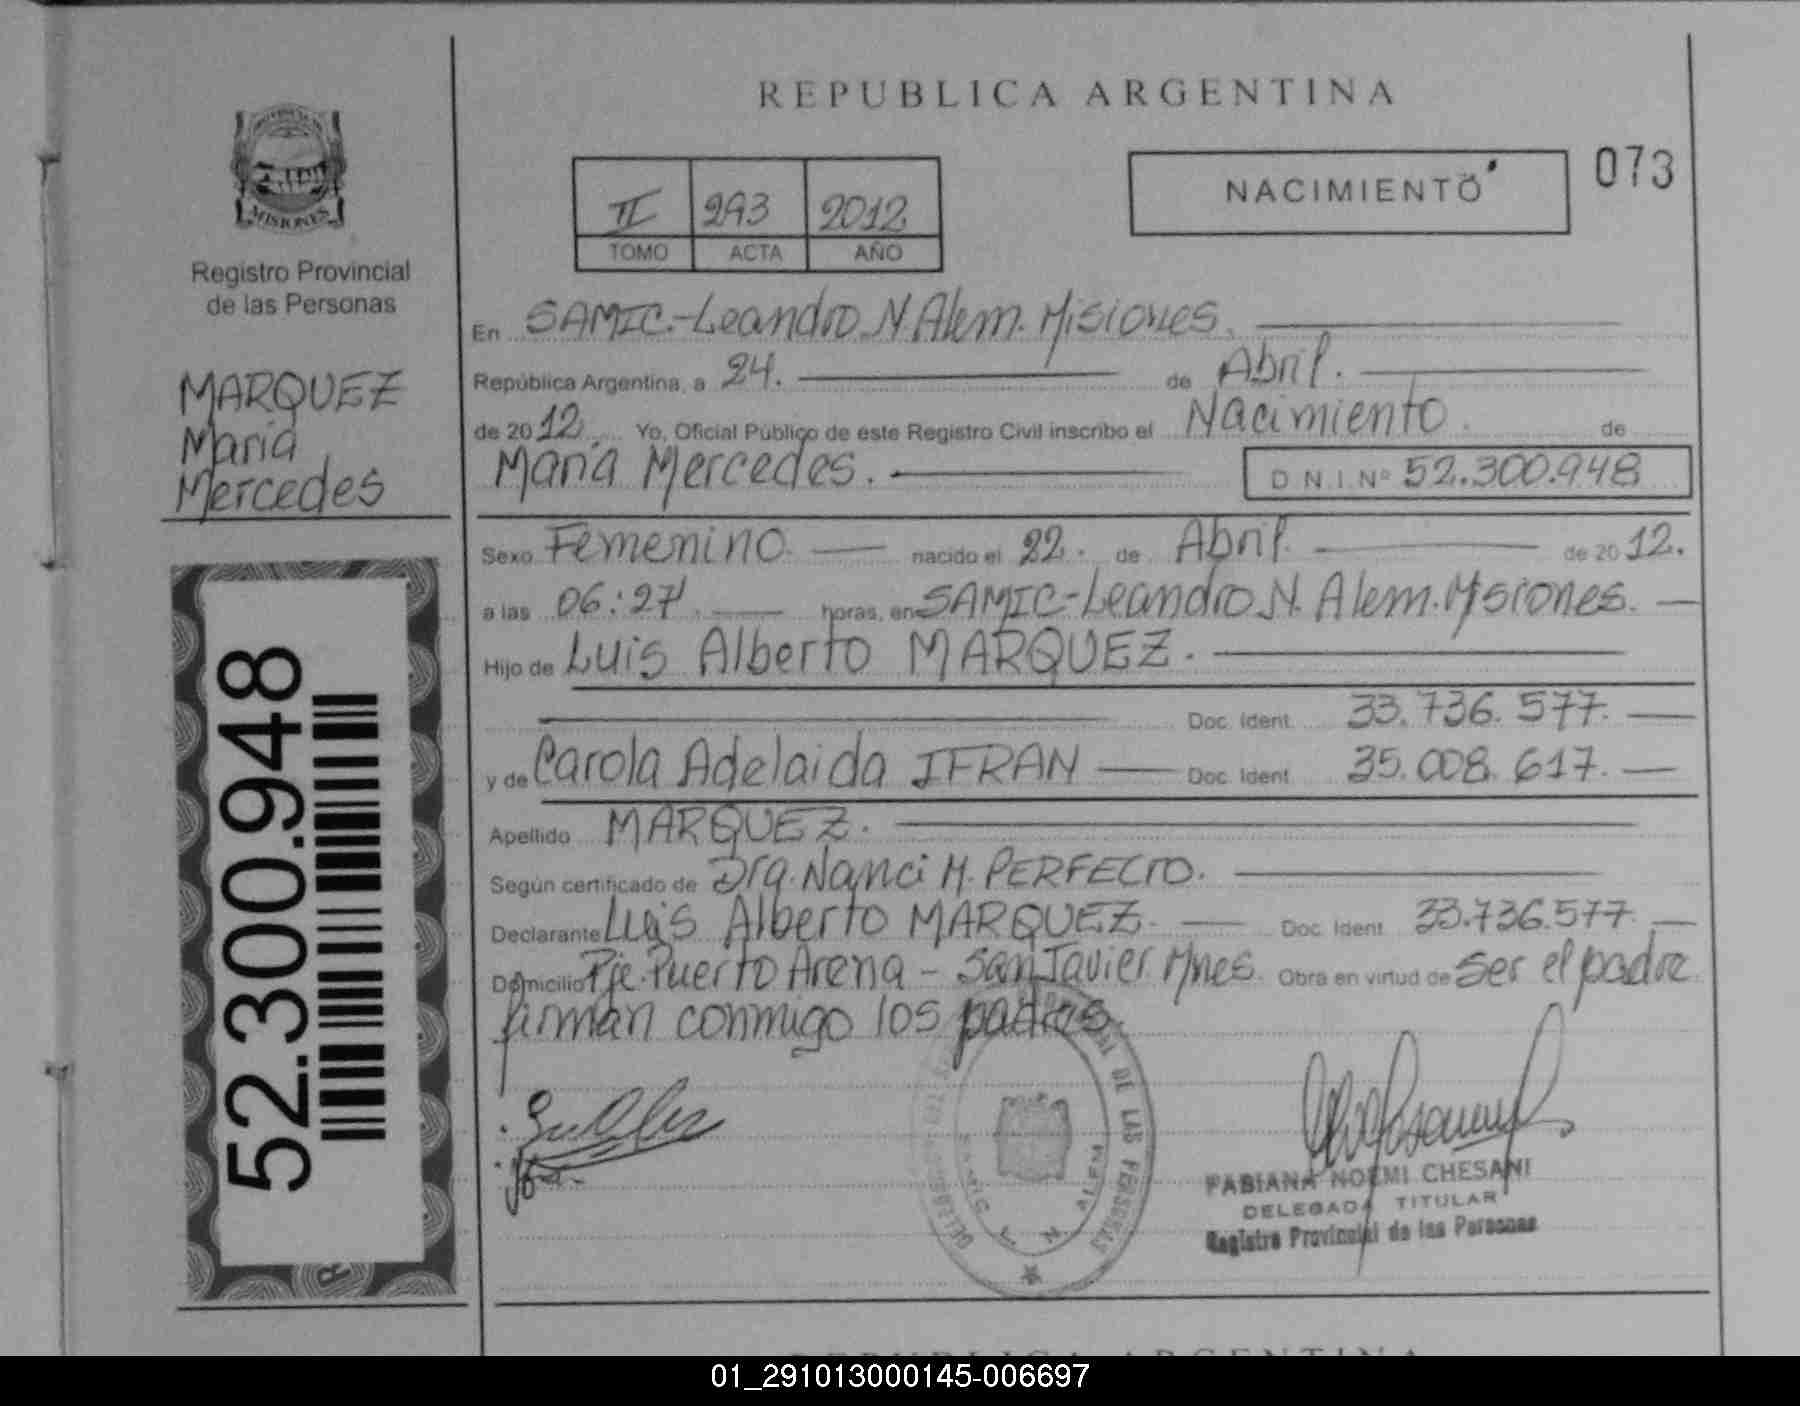 REPUBLICA ARGENTINA
MISIONES
Registro Provincial
de las Personas
MARQUEZ
María
Mercedes
52.300.948
II 293 2012
TOMO ACTA AÑO
NACIMIENTO
073
En SAMIC.-Leandro N. Alem. Misiones.
República Argentina, a 24. de Abril.
de 2012. Yo, Oficial Público de este Registro Civil inscribo el Nacimiento. de
María Mercedes. D.N.I.Nº 52.300.948
Sexo Femenino. nacido el 22. de Abril. de 2012.
a las 06:27. horas, en SAMIC-Leandro N. Alem. Misiones.
Hijo de Luis Alberto MARQUEZ.
Doc. Ident. 33.736.577.
y de Carola Adelaida IFRAN Doc. Ident. 35.008.617.
Apellido MARQUEZ.
Según certificado de Dra. Nanci M. PERFECTO.
Declarante Luis Alberto MARQUEZ. Doc. Ident. 33.736.577.
Domicilio Pje. Puerto Arena - San Javier. Mnes. Obra en virtud de ser el padre
firman conmigo los padres.
DE LAS PERSONAS
SAMIC L N ALEM
FABIANA NOEMI CHESANI
DELEGADA TITULAR
Registro Provincial de las Personas
REPUBLICA ARGENTINA
01_291013000145-006697